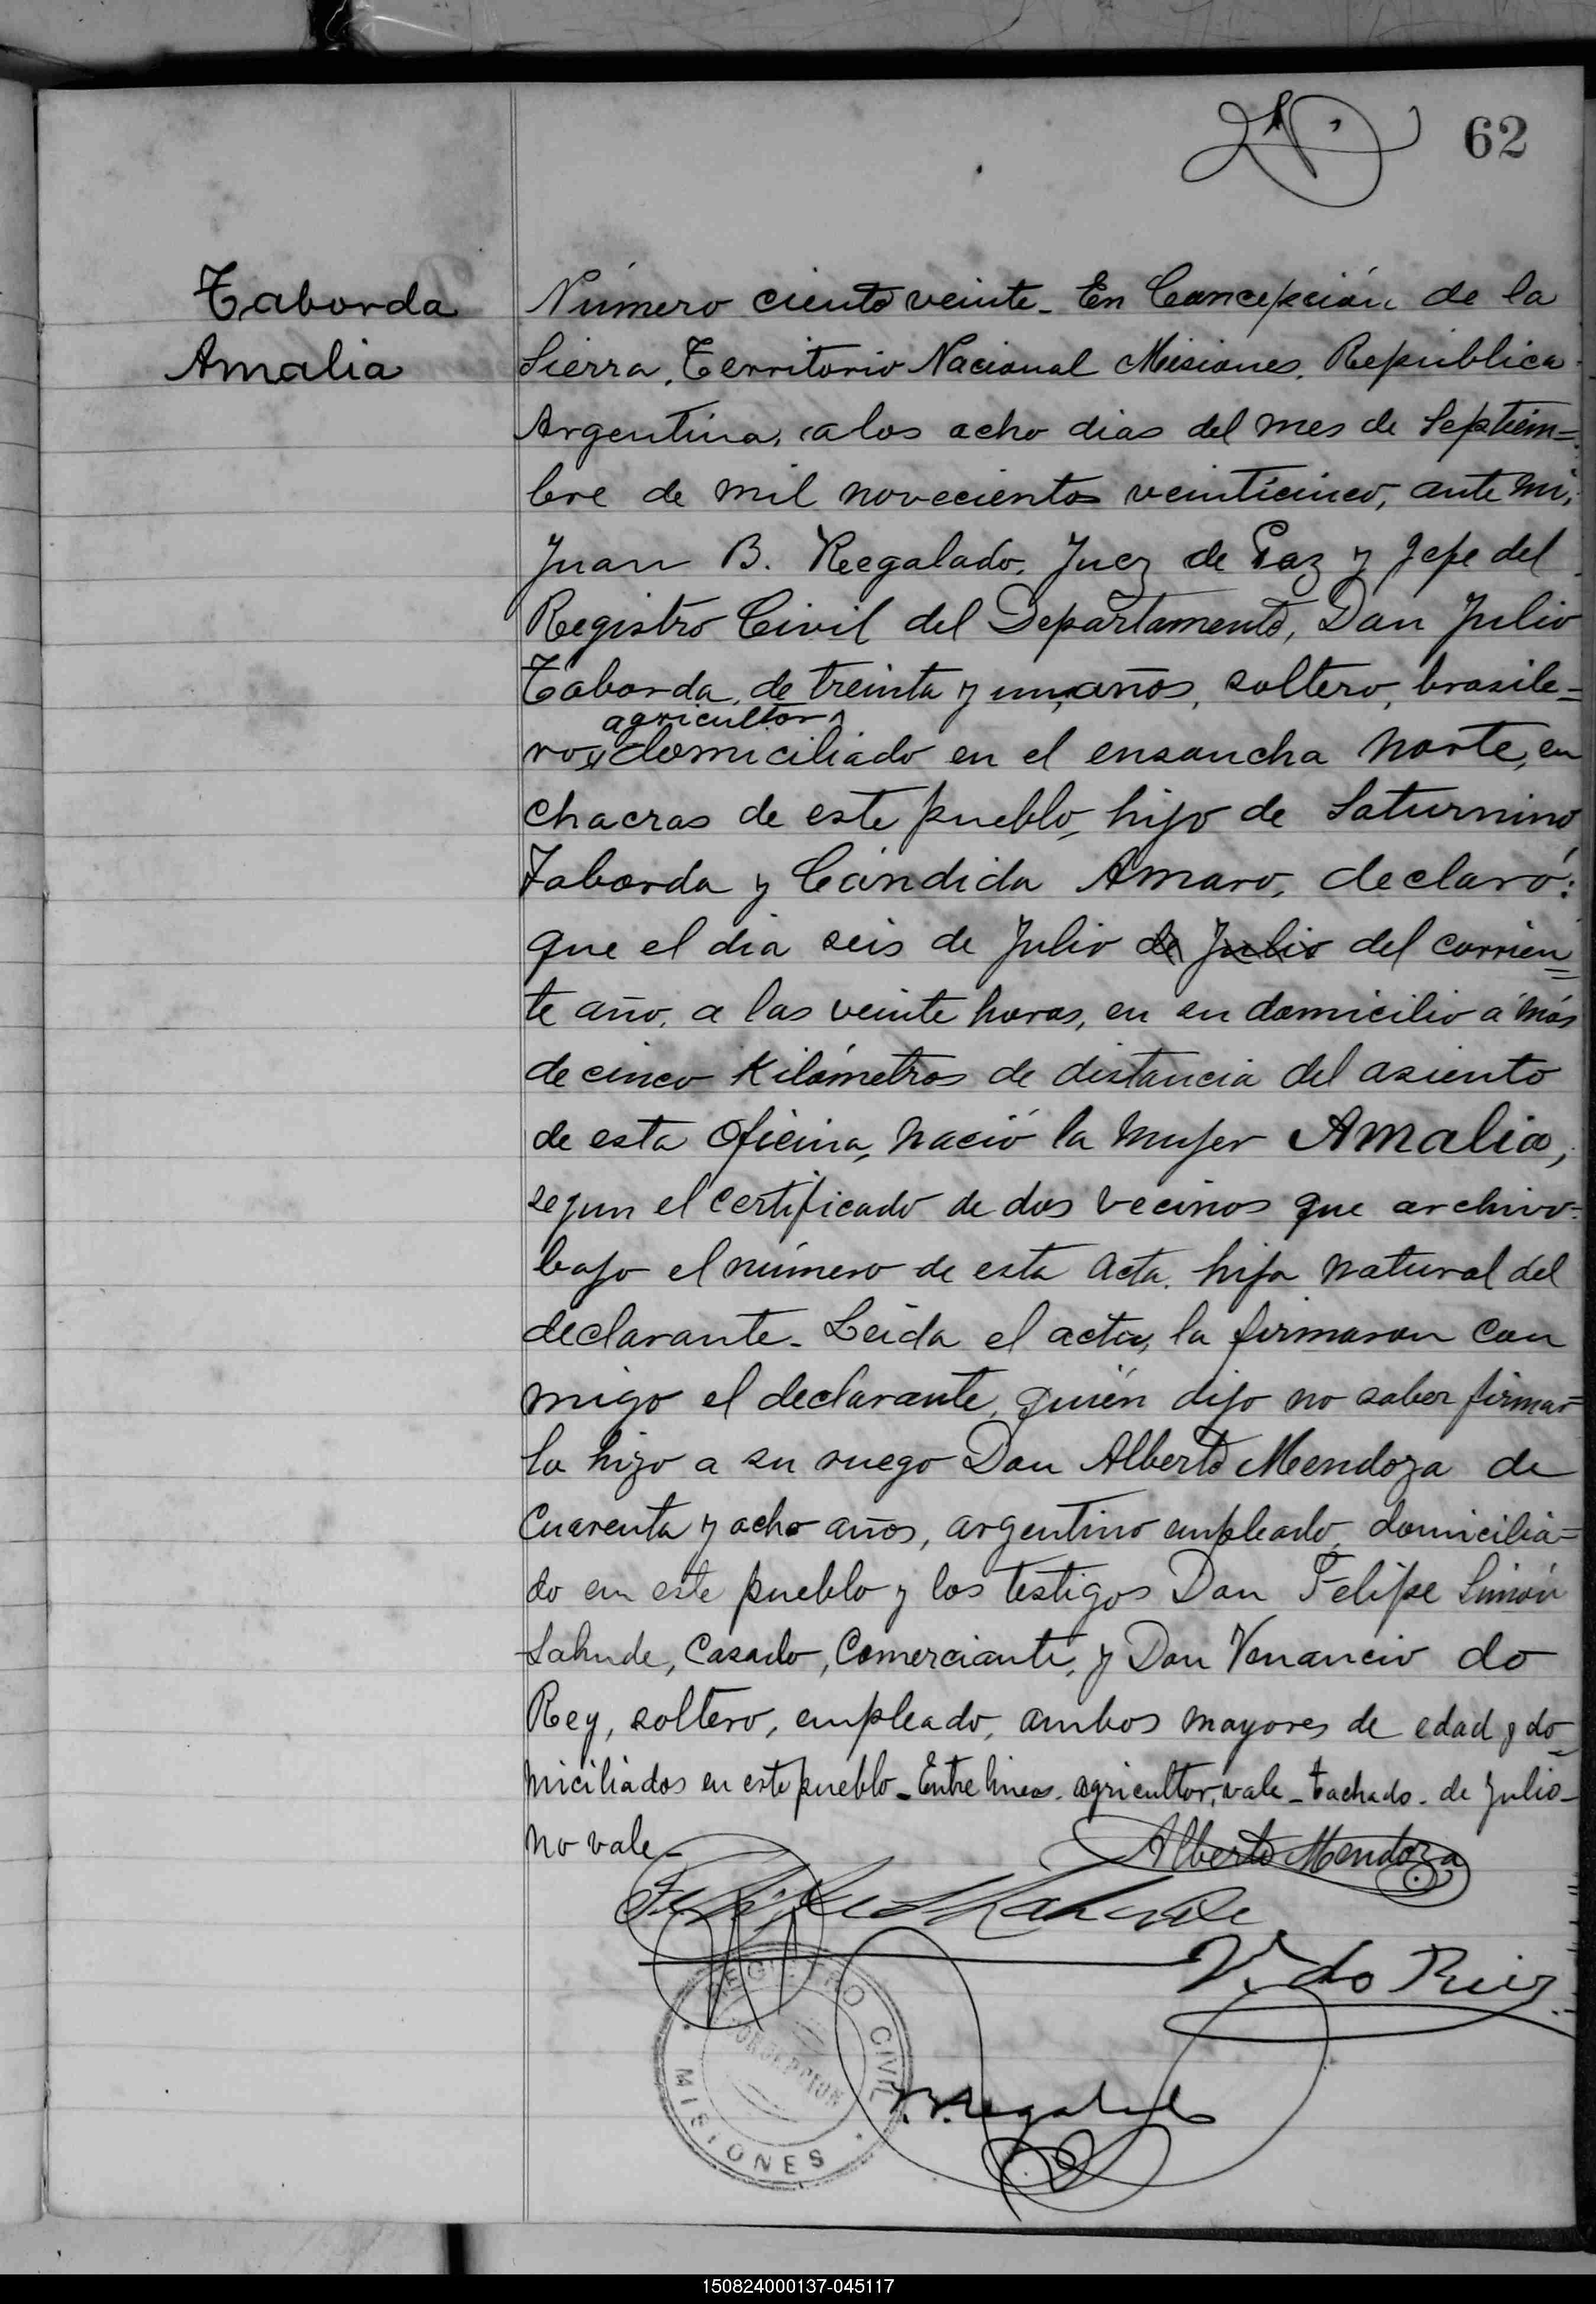 62
Taborda
Amalia
Número ciento veinte. En Concepción de la
Sierra, Territorio Nacional Misiones, República
Argentina, a los ocho dias del mes de Septiem=
bre de mil novecientos veinticinco, ante mi,
Juan B. Regalado, Juez de Paz y Jefe del
Registro Civil del Departamento, Don Julio
Taborda, de treinta y un años, soltero, brasile=
agricultor
ro, domiciliado en el ensancha Norte, en
chacras de este pueblo, hijo de Saturnino
Taborda y Cándida Amaro, declaró:
que el dia seis de Julio de Julio del corrien=
te año, a las veinte horas, en su domicilio a más
de cinco Kilómetros de distancia del asiento
de esta Oficina, nació la mujer Amalia,
segun el certificado de dos vecinos que archivo
bajo el número de esta acta, hija natural del
declarante. Leida el acta, la firmaron con
migo el declarante, quién dijo no saber firmar
lo hizo a su ruego Don Alberto Mendoza de
Cuarenta y ocho años, argentino empleado, domicilia=
do en este pueblo y los testigos Don Felipe Simón
Sahude, Casado, Comerciante, y Don Venancio do
Rey, soltero, empleado, ambos mayores de edad y do=
miciliados en este pueblo. Entre lineas. agricultor, vale. tachado. de Julio.
no vale.
Alberto Mendoza
V. do Rey
REGISTRO CIVIL
CONCEPCION
MISIONES
150824000137-045117